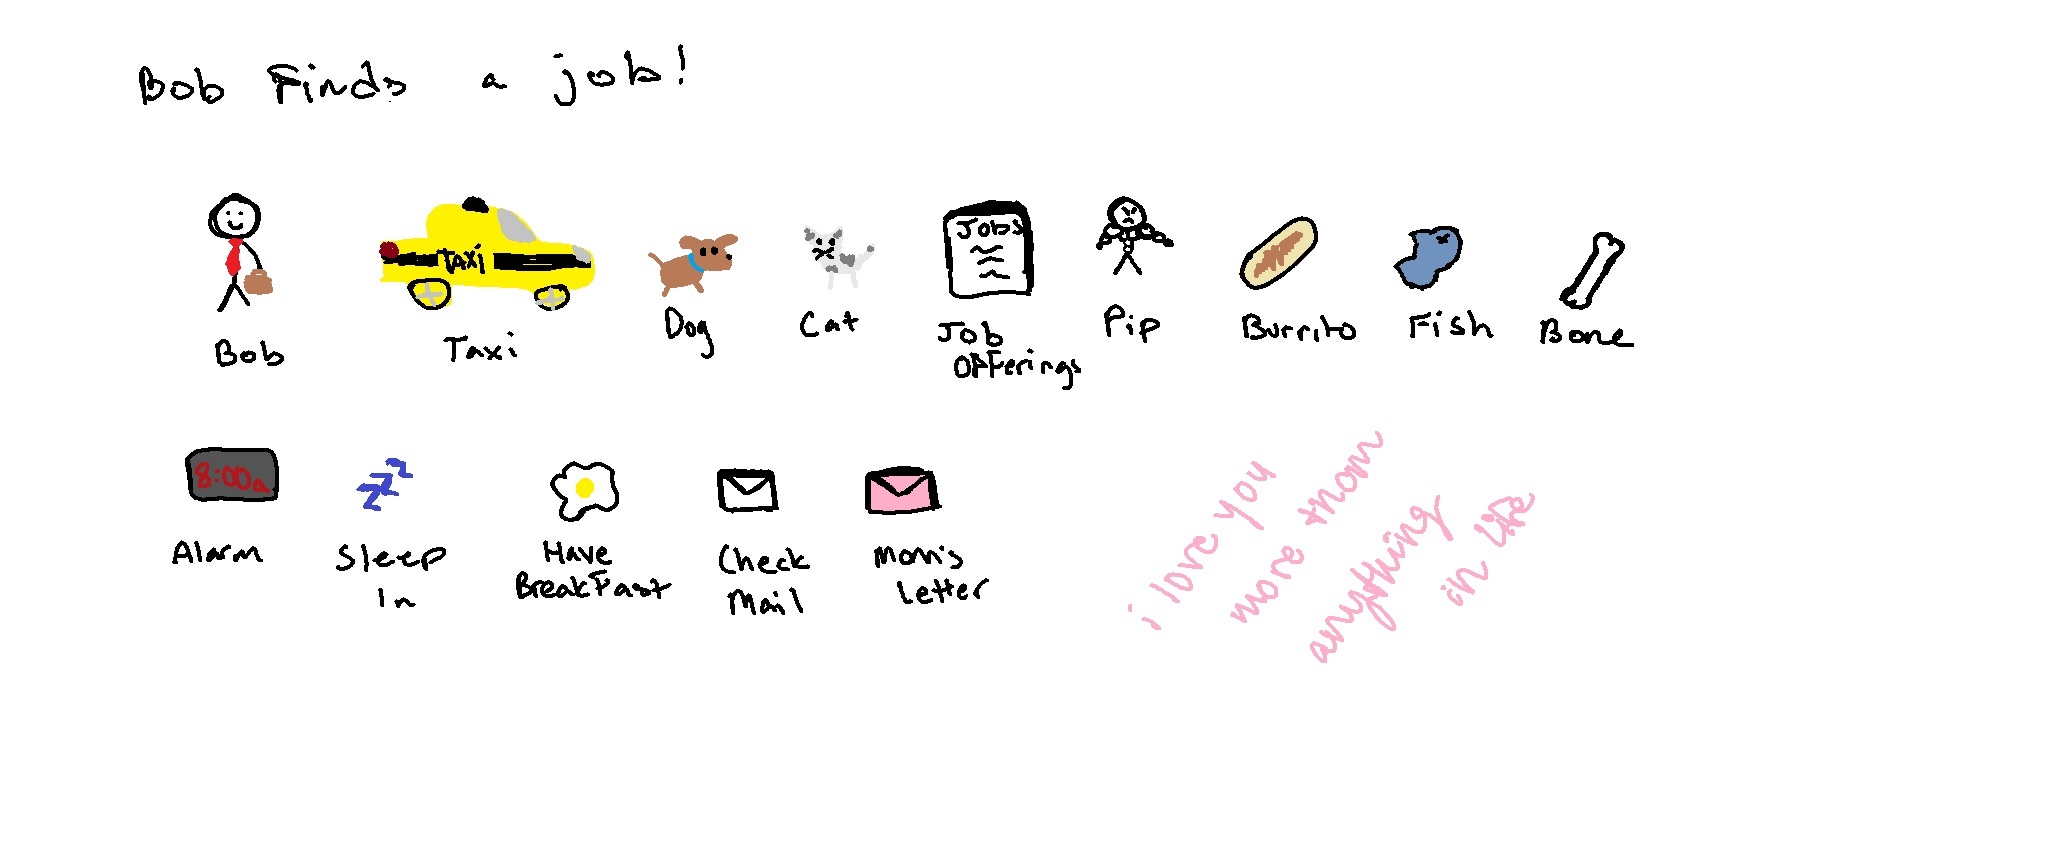 Bob Finds a job!
TAXI
Jobs
Bob
Taxi
Dog
Cat
Job
Offerings
Pip
Burrito
Fish
Bone
8:00a
zzz
Alarm
Sleep
In
Have
Breakfast
Check
Mail
Mom's
Letter
i love you
more thom
anything
in life